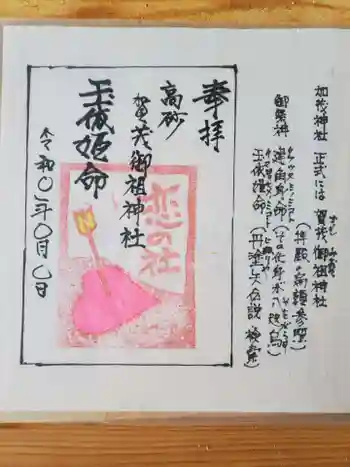 加茂神社 正式には 賀茂御祖神社
(拝殿の扁額参照)
御祭神
建角身命(その化身が八咫烏)
玉依姫命(丹塗矢伝説 検索)
奉拝
高砂
賀茂御祖神社
玉依姫命
令和〇年〇月〇日
恋の社